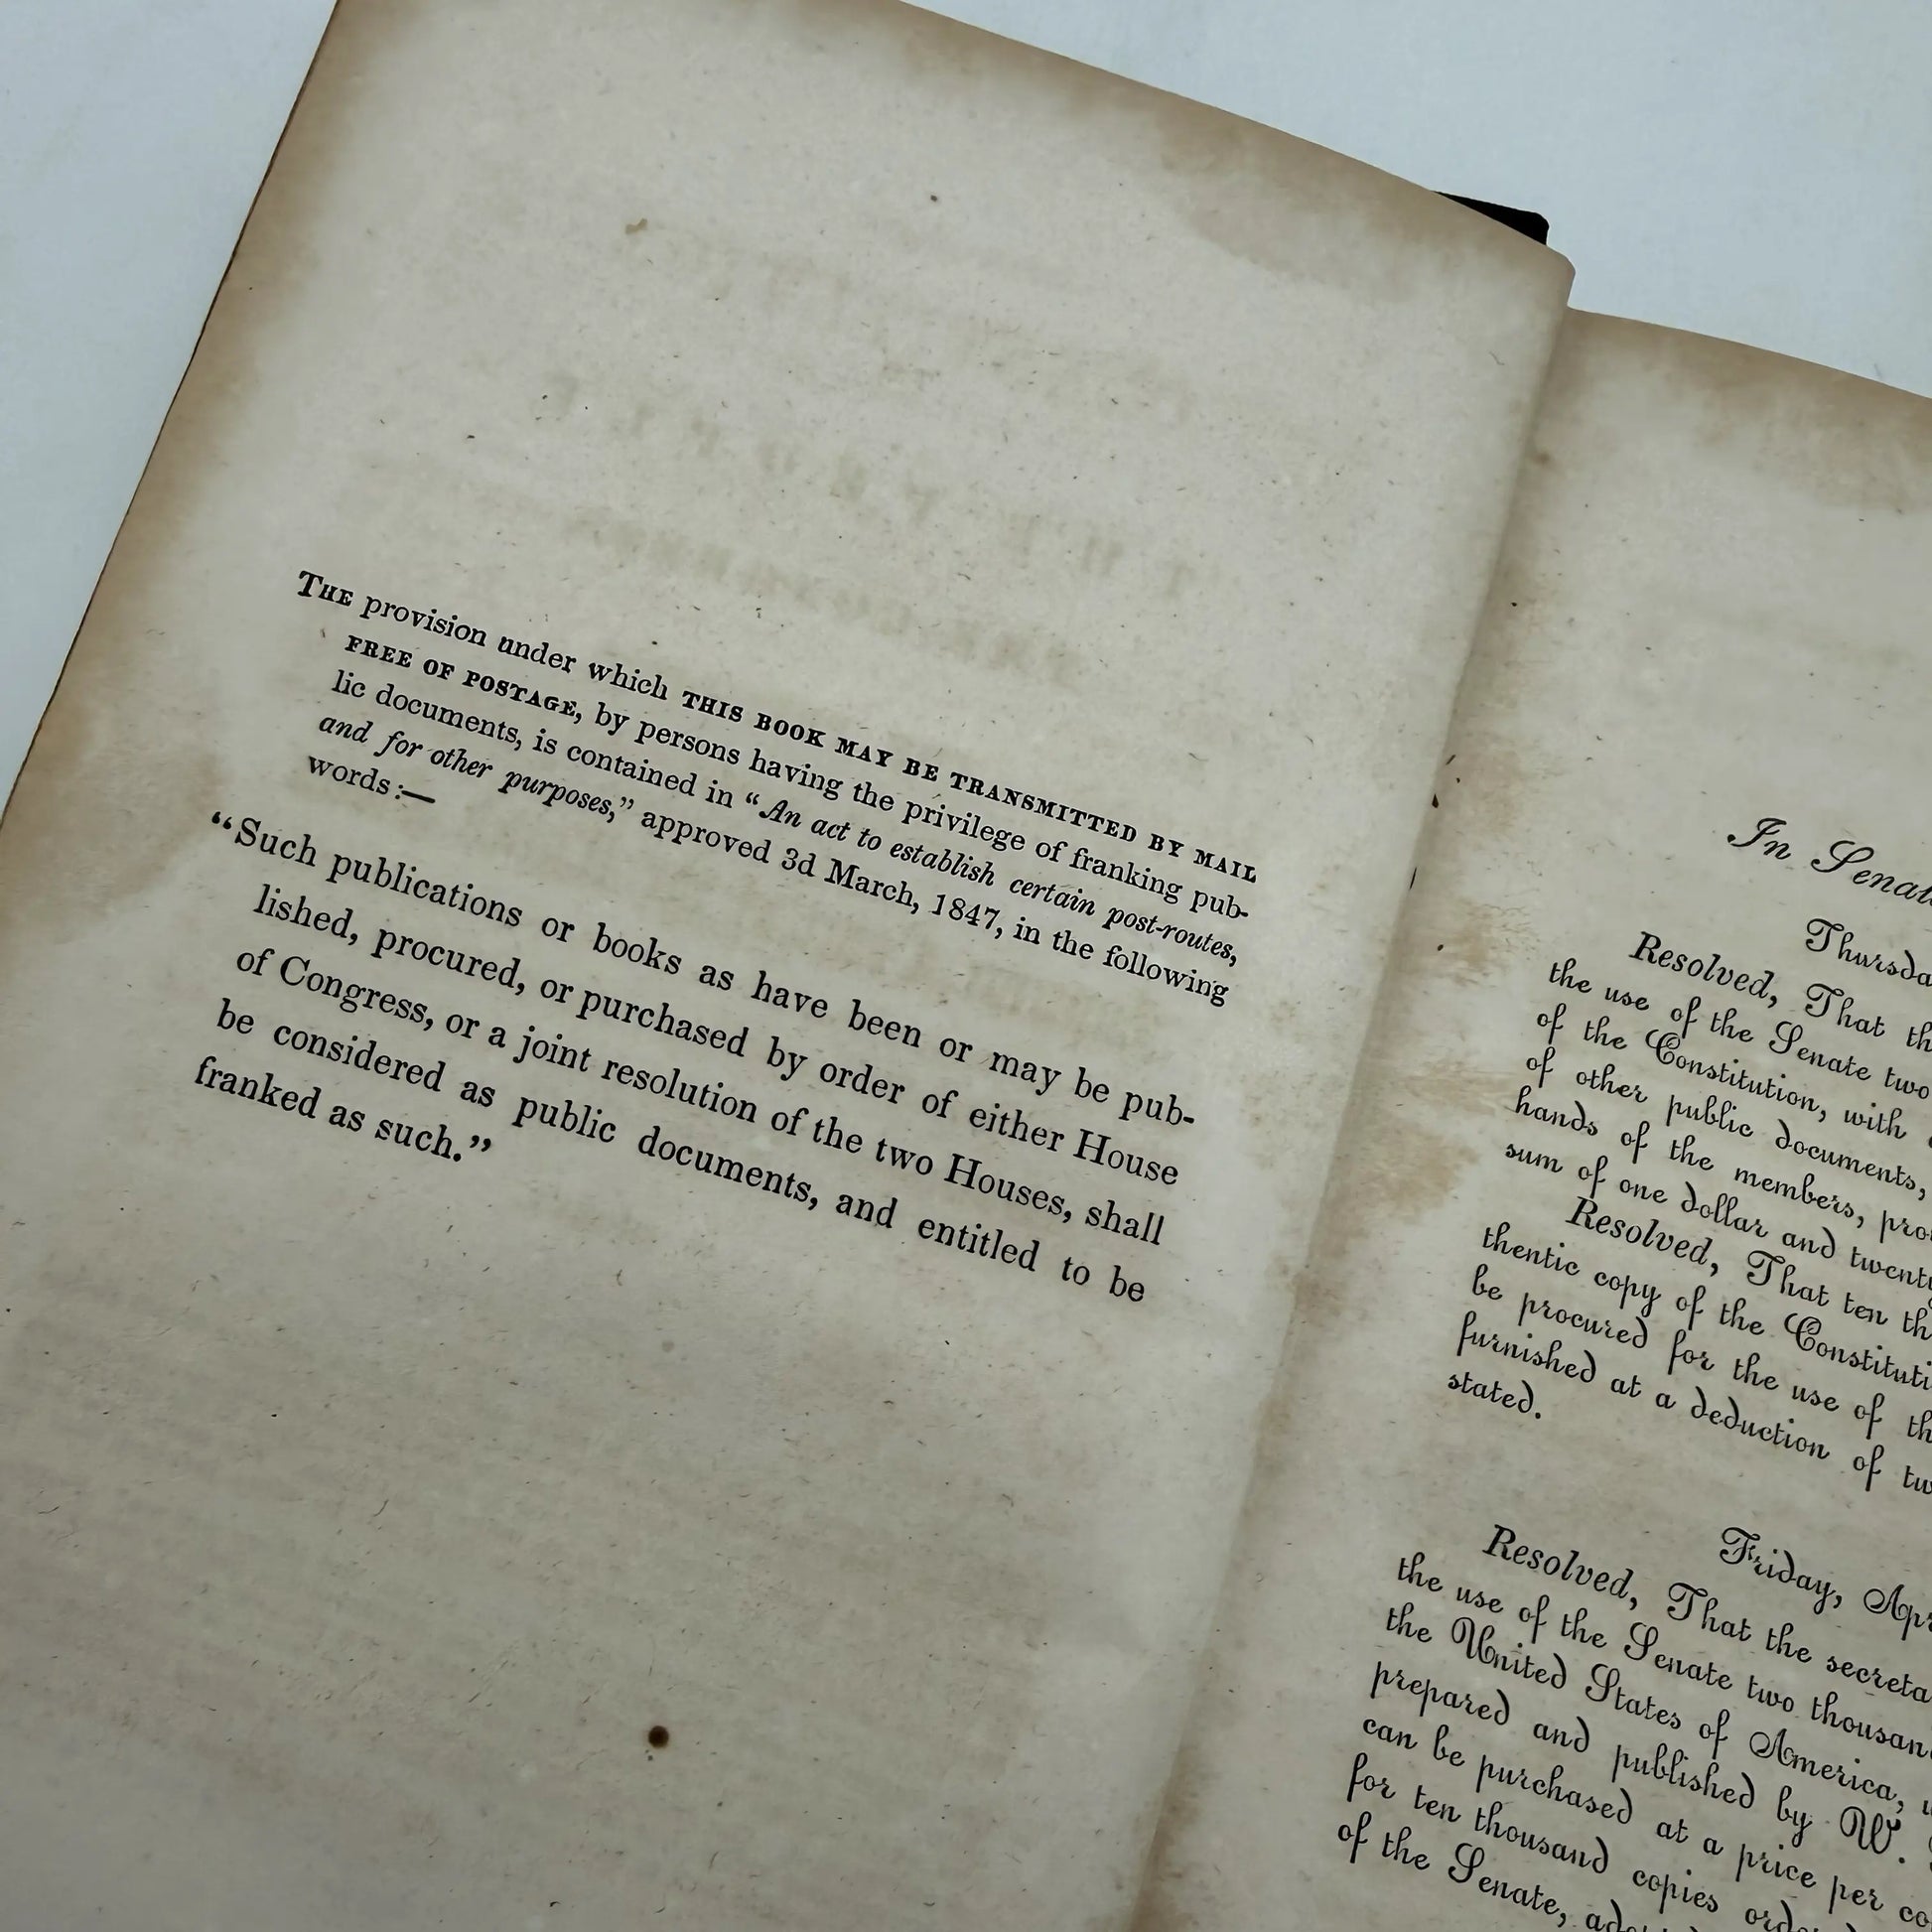 THE provision under which THIS BOOK MAY BE TRANSMITTED BY MAIL
FREE OF POSTAGE, by persons having the privilege of franking pub-
lic documents, is contained in “An act to establish certain post-routes,
and for other purposes,” approved 3d March, 1847, in the following
words:—
“Such publications or books as have been or may be pub-
lished, procured, or purchased by order of either House
of Congress, or a joint resolution of the two Houses, shall
be considered as public documents, and entitled to be
franked as such.”
In Senat
Thursda
Resolved, That th
the use of the Senate two
of the Constitution, with
of other public documents,
hands of the members, pro
sum of one dollar and twenty
Resolved, That ten th
thentic copy of the Constituti
be procured for the use of th
furnished at a deduction of tw
stated.
Friday, Apr
Resolved, That the secreta
the use of the Senate two thousan
the United States of America,
prepared and published by W.
can be purchased at a price per co
for ten thousand copies orde
of the Senate,